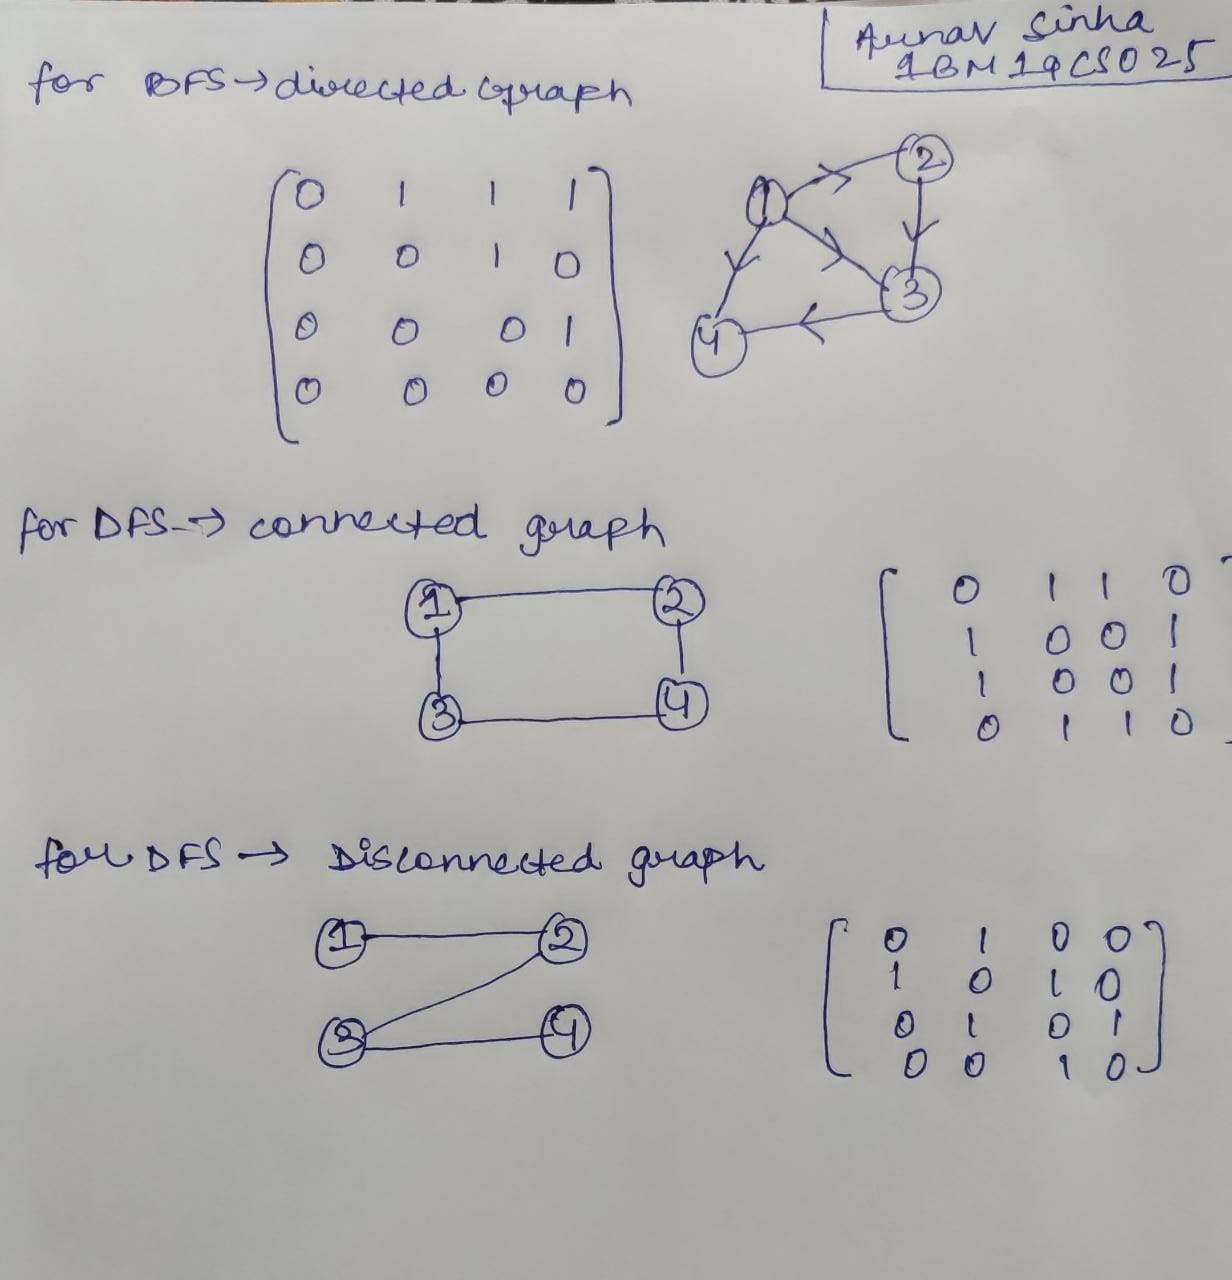 Arnav Sinha
1BM19CS025
for BFS→directed Graph
0 1 1 1
0 0 1 0
0 0 0 1
0 0 0 0
1 2 3 4
for DFS→ connected graph
1 2
3 4
0 1 1 0
1 0 0 1
1 0 0 1
0 1 1 0
for DFS → Disconnected graph
1 2
3 4
0 1 0 0
1 0 1 0
0 1 0 1
0 0 1 0